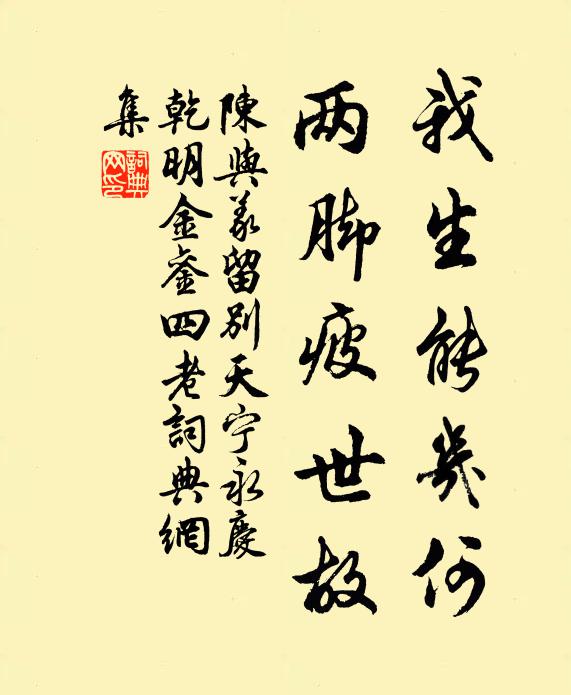 我生能幾何
兩脚疲世故
陳與義留別天宁永慶
乾明金銮四老詞典網
集
詞典网印